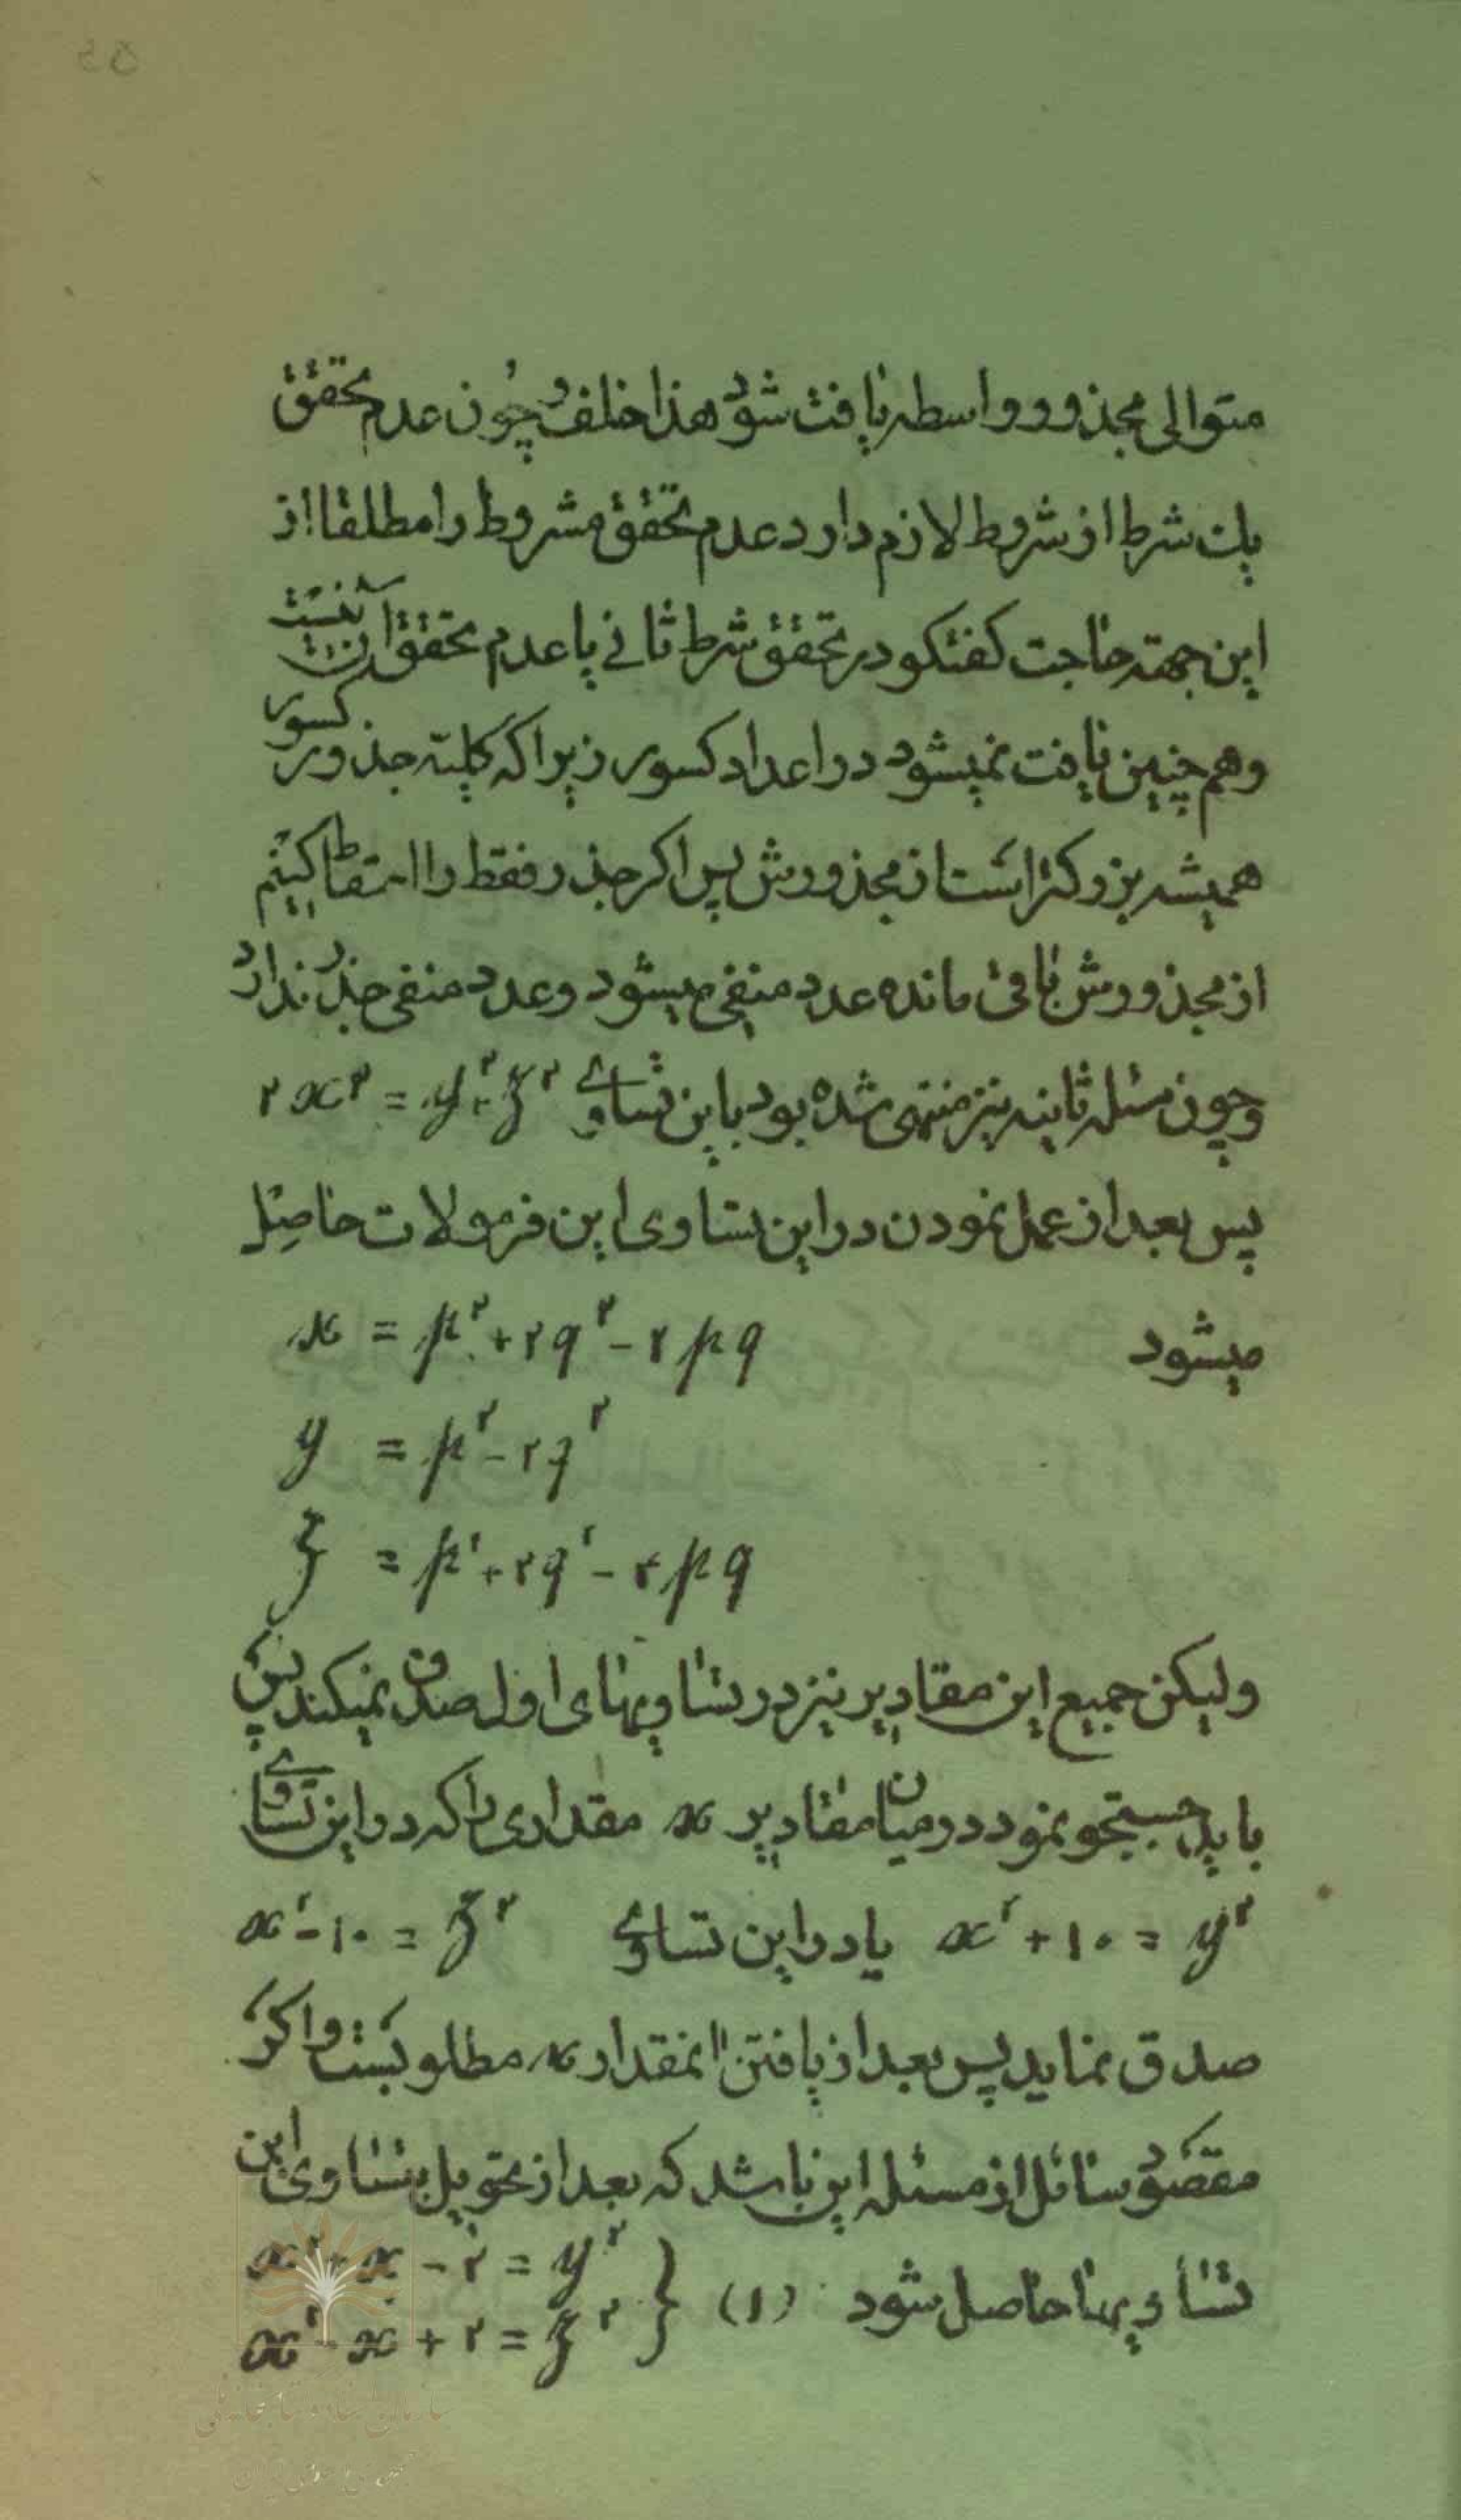 متوالی مجذور و واسطه یافت شود هذا خلف و چون عدم تحقق
یک شرط از شروط لازم دارد عدم تحقق مشروط را مطلقا از
این جهته حاجت کفتکو در تحقق شرط ثانی یا عدم تحقق آن نیست
و هم چنین یافت نمیشود در اعداد کسور زیرا که کلیته جذور کسور
همیشه بزرکتر است از مجذورش پس اکر جذر فقط را اسقاط کنیم
از مجذورش باقی مانده عدد منفی میشود و عدد منفی جذر ندارد
و چون مسئله ثانیه نیز منتهی شده بود باین تساوی ۲x² = y² + z²
پس بعد از عمل نمودن در این تساوی این فرمولات حاصل
میشود x = p² + ۲q² - ۲pq
y = p² - ۲q²
z = p² + ۲q² - ۴pq
ولیکن جمیع این مقادیر نیز در تساویهای اول صدق نمیکند پس
باید جستجو نمود در میان مقادیر x مقداری را که در این تساوی
x² + ۱۰ = y² یا در این تساوی x² - ۱۰ = z²
صدق نماید پس بعد از یافتن انمقدار x مطلوبست و اکر
مقصود سائل از مسئله این باشد که بعد از تحویل بتساوی این
تساویها حاصل شود (۱) { x² + x - ۲ = y²
x² - x + ۲ = z²